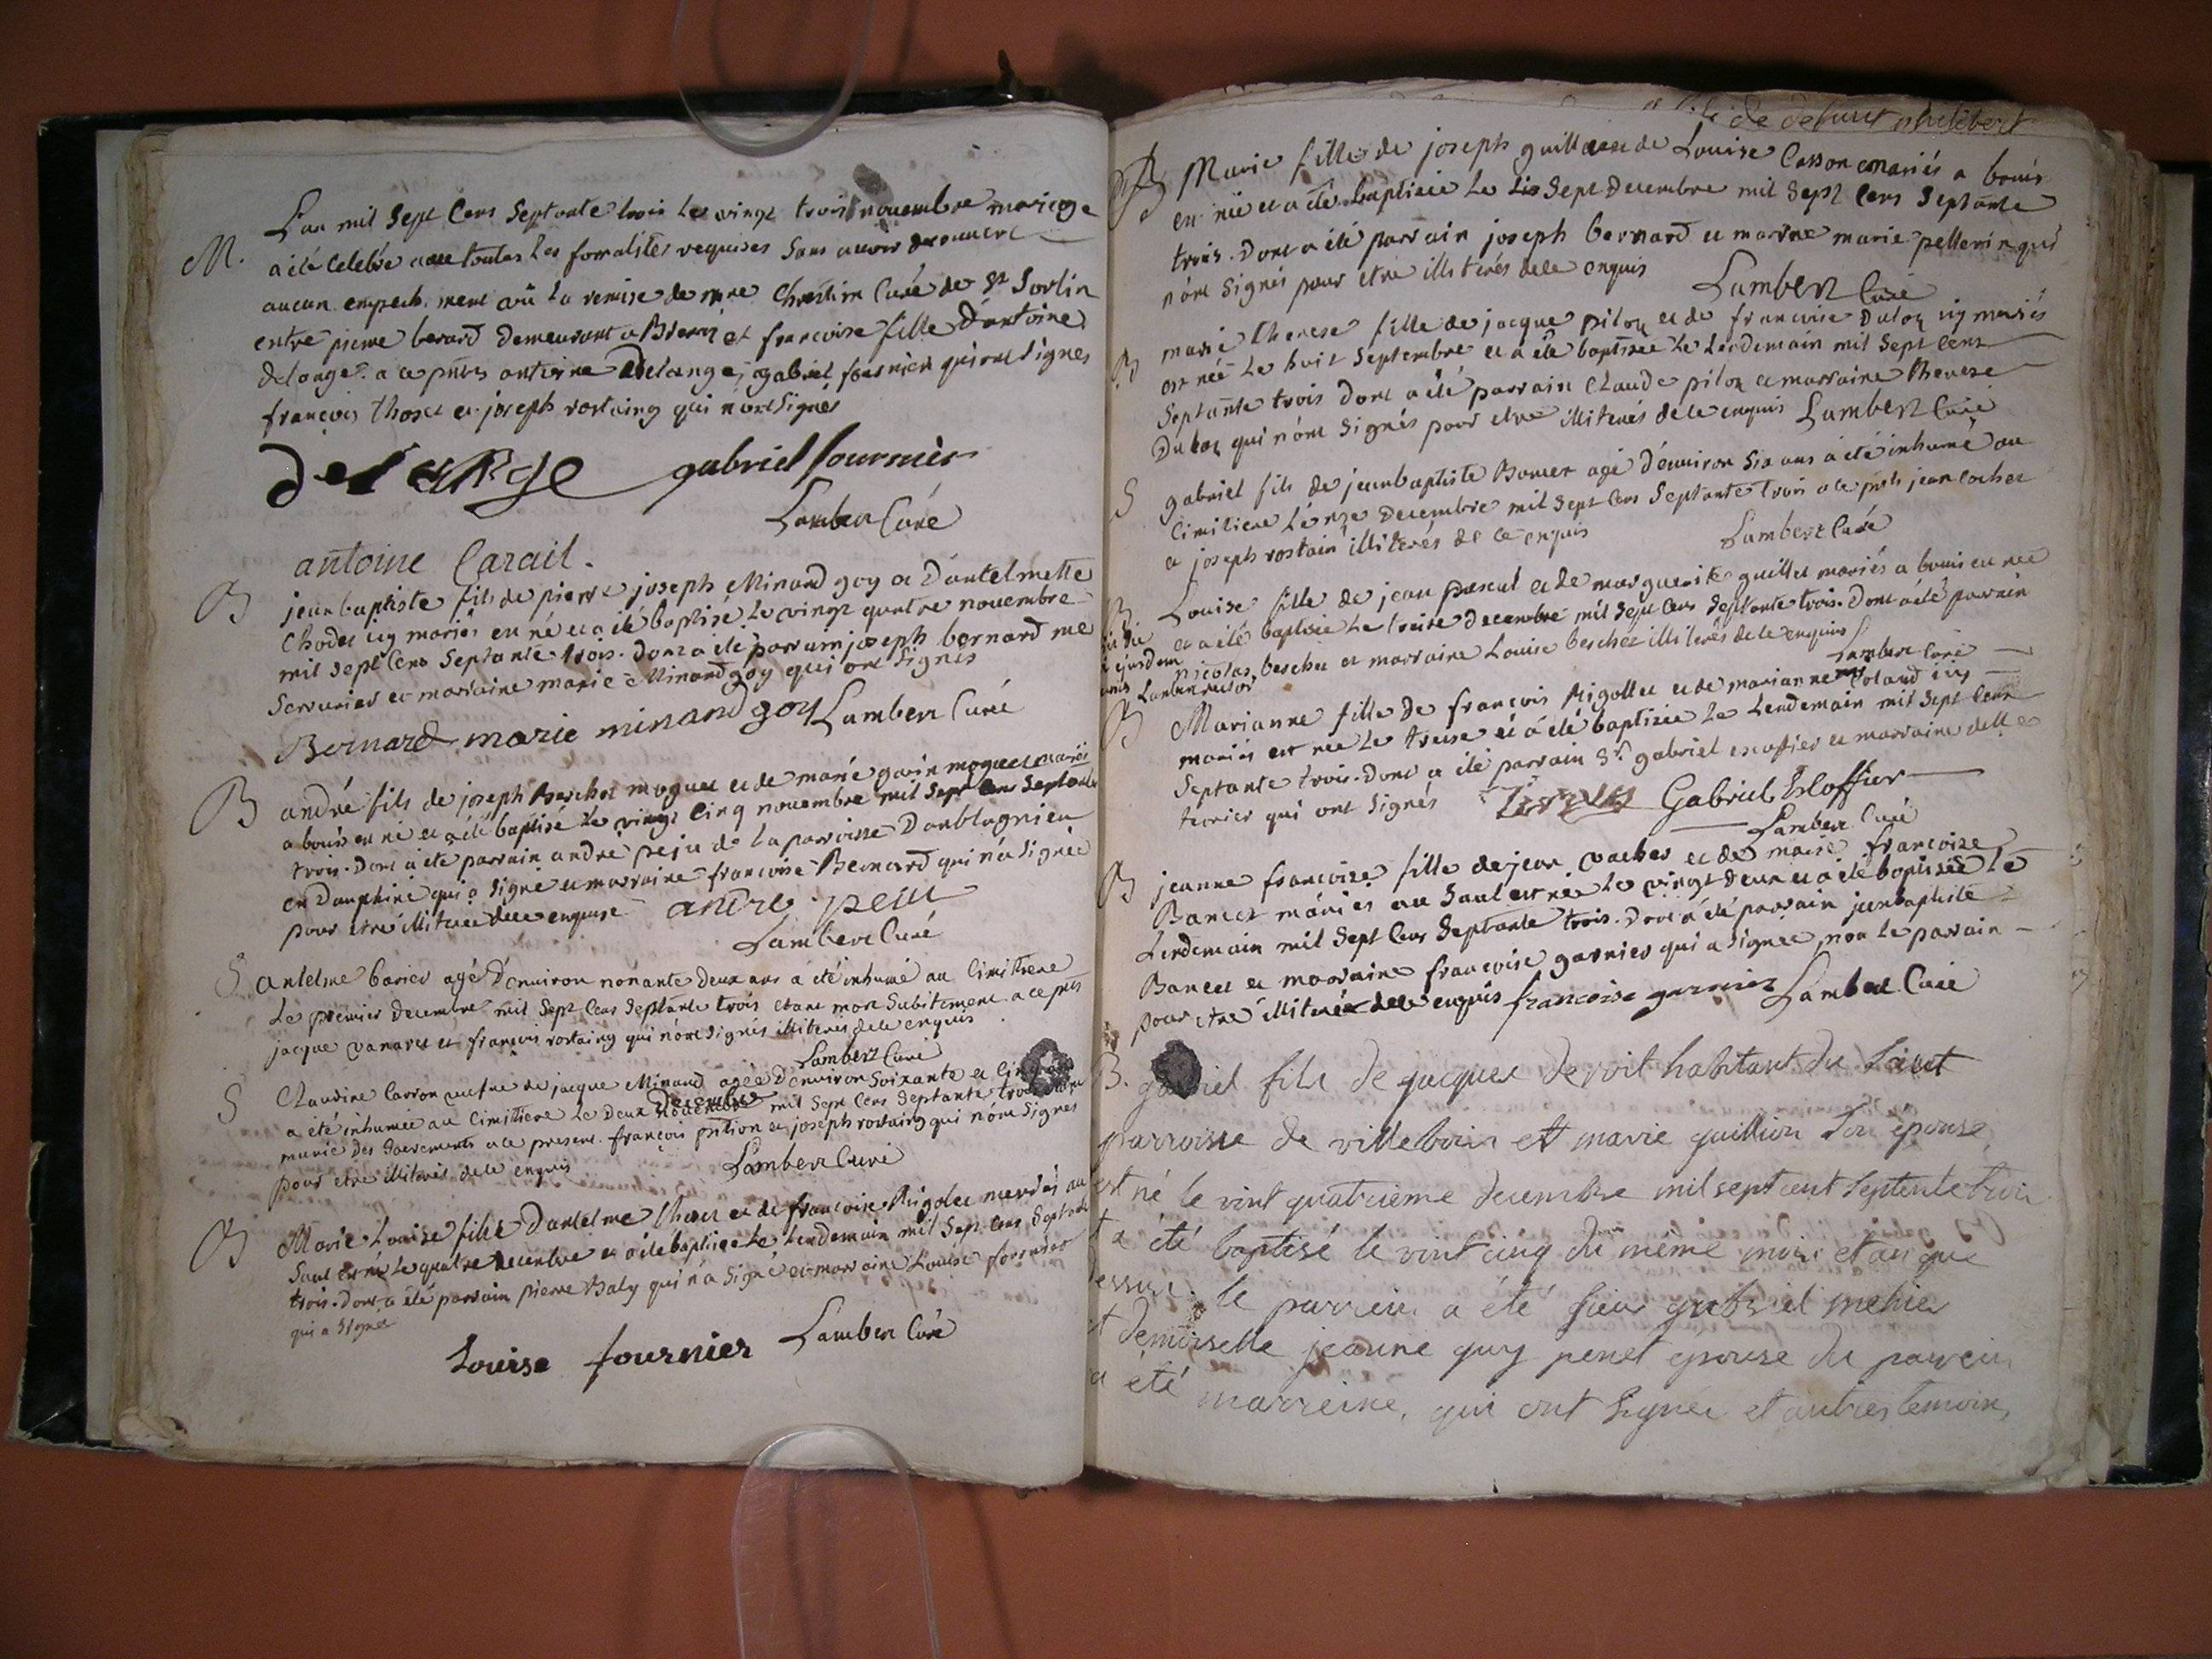 M. L'an mil Sept Cens Septante trois Le vingt trois novembre mariage
a été Celebré avec toutes Les formalités requises Sans avoir decouvert
aucun empechement vû La remise de mre Chrétien Curé de St Sorlin
entre pierre berard demeurant a Brenis et francoise fille d'antoine
delange. a ce pñts antoine delange, gabriel fournier qui ont signes
françois thoset et joseph rostaing qui n'ont Signés
delange gabriel fournier
Lambert Curé
antoine Carail.
B jeanbaptiste fils de pierre joseph Minand goy et D'antelmette
Chodet icy mariés est né et a été baptisé Le vingt quatre novembre
mil sept Cens Septante trois. dont a été parrain joseph bernard me
Serrurier et marraine marie Minand goy qui ont Signés
Bernard marie minand goy Lambert Curé
B andré fils de joseph Berchet moguet et de marie gorin moguet mariés
a bouis est né et a été baptisé Le vingt Cinq novembre mil Sept Cens Septante
trois. dont a été parrain andré peju de La parroisse Danblagnieu
en Dauphiné qui a signé et marraine francoise Bernard qui n'a Signée
pour être illiterée de ce enquise andre peiu
Lambert Curé
S antelme barier agé d'environ nonante deux ans a été inhumé au Cimitiere
Le premier decembre mil Sept Cens Septante trois etant mort Subitement a ce pñts
jacque vanaret et françois rostaing qui n'ont signés illiterés de ce enquis
Lambert Curé
S Claudine Carron veufue de jacque Minand agée D'environ Soixante et
a été inhumée au Cimitiere Le deux decembre mil Sept Cens Septante trois
munie des Sacrements a ce present françois pition et joseph rostaing qui n'ont Signés
pour etre illiterés de ce enquis
Lambert Curé
B Marie Louise fille D'antelme thoset et de francoise Rigollet mariés au
Saut est né Le quatre decembre et a été baptisée Le Lendemain mil Sept Cens Septante
trois. dont a été parrain pierre Baly qui n'a Signé et marraine Louise fournier
qui a Signée
Louise fournier Lambert Curé
fille de defunt philibert
B Marie fille de joseph guillaux de Louise Casson mariés a bouis
est née et a été baptisée Le Sept decembre mil Sept Cens Septante
trois. Dont a été parrain joseph bernard et marrne marie pellerin qui
n'ont Signés pour être illiterés de ce enquis
Lambert Curé
B marie therese fille de jacque piloz et de francoise Duloz icy mariés
est née Le huit Septembre et a été baptisée Le Lendemain mil Sept Cens
Septante trois dont a été parrain Claude piloz et marraine therese
Duloz qui n'ont Signés pour etre illiterés de ce enquis Lambert Curé
S gabriel fils de jeanbaptiste Bonnet agé d'environ Six ans a été inhumé au
Cimitiere L'onze decembre mil Sept Cens Septante trois a ce pñts jean Cochet
et joseph rostain illiterés de ce enquis
Lambert Curé
B Louise fille de jean pascal et de marguerite guillet mariés a bouis est née
et a été baptisée Le treise decembre mil Sept Cens Septante trois. Dont a été parrain
nicolas berchet et marraine Louise berchet illiterés de ce enquis
Lambert Curé
B Marianne fille de françois Rigollet et de marianne Roland icy
mariés est née Le treise et a été baptisée Le Lendemain mil Sept Cens
Septante trois. Dont a été parrain Sr. gabriel escoffier et marraine delle
terrier qui ont Signés Gabriel Escoffier
Lambert Curé
B jeanne francoise fille de jean vacher et de marie francoise
Bancet mariés au Saut est née Le vingt deux et a été baptisée Le
Lendemain mil Sept Cens Septante trois. Dont a été parrain jeanbaptiste
Bancet et marraine francoise garnier qui a signée, non Le parrain
pour etre illiteré de ce enquis francoise garnier Lambert Curé
B. gabriel fils de jacques devoit habitant du Saut
parroisse de villebois et marie guillion son épouse
est né le vint quatrieme decembre mil sept cent septente trois
et a été baptisé le vint cinq du même mois et an que
dessus. le parrein a été sieur gabriel mehier
et demoiselle jeanne guy penet epouse du parrein
a été marreine, qui ont signés et autres temoins